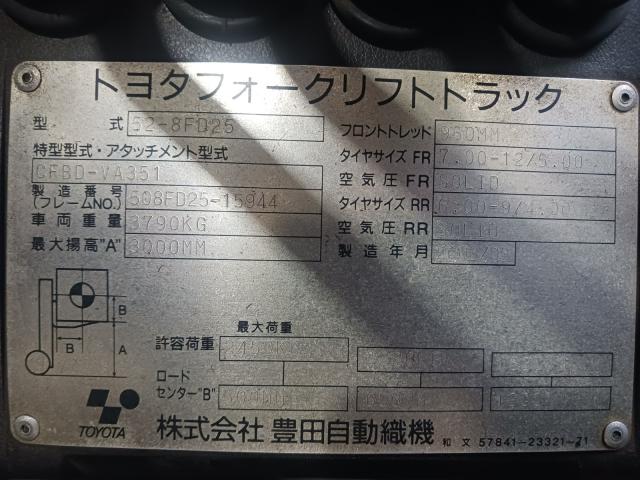 トヨタフォークリフトトラック
型式 52-8FD25
特型型式・アタッチメント型式
CFBD-VA351
製造番号
(フレームNO.) 508FD25-15944
車両重量 3790KG
最大揚高"A" 3000MM
フロントトレッド 960MM
タイヤサイズ FR 7.00-12/5.00
空気圧 FR SOLID
タイヤサイズ RR
空気圧 RR SOLID
製造年月
B
B
A
最大荷重
許容荷重
ロード
センター"B"
TOYOTA
株式会社 豊田自動織機
和文 57841-23321-71